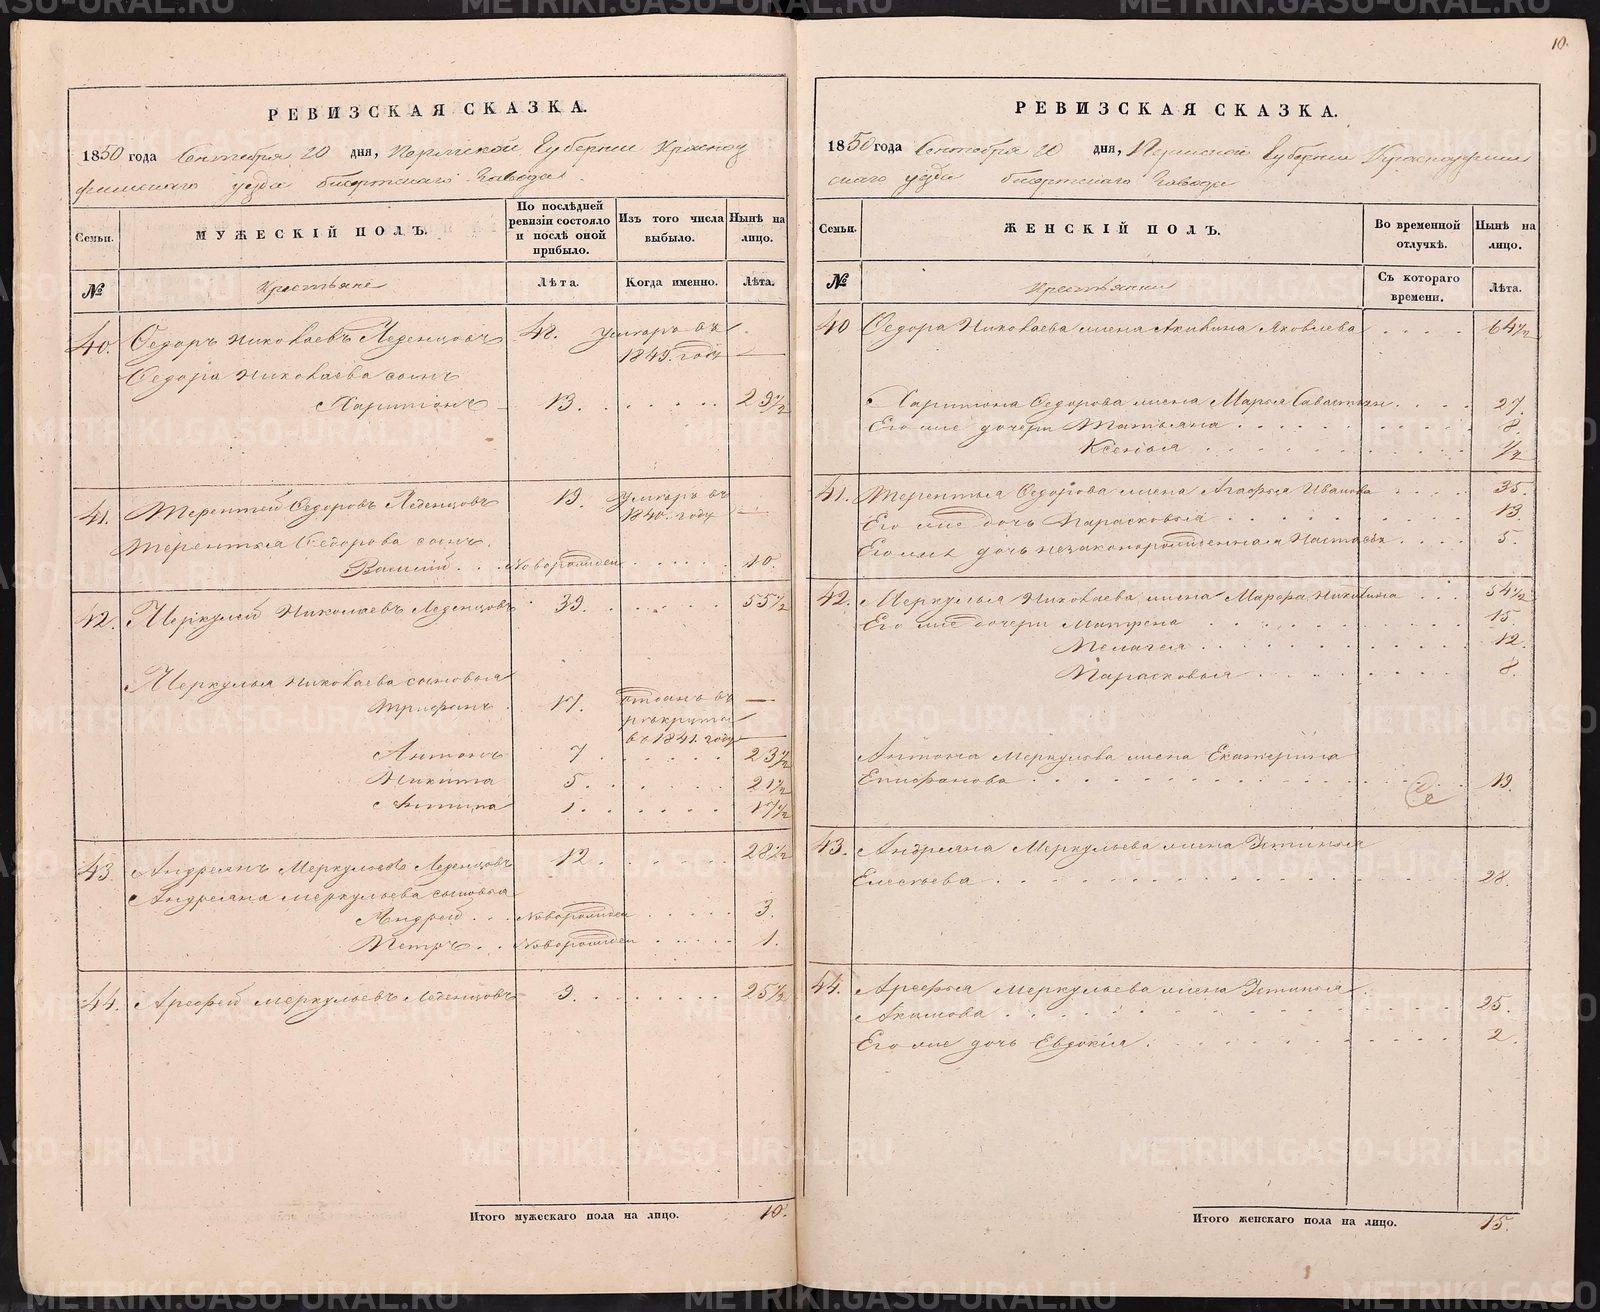 10.
РЕВИЗСКАЯ СКАЗКА.
1850 года Сентября 20 дня, Пермской Губернии Красноу
фимскаго уезда бисертскаго Завода
Семьи.
МУЖЕСКІЙ ПОЛЪ.
По послѣдней ревизіи состояло и послѣ оной прибыло.
Изъ того числа выбыло.
Нынѣ на лицо.
№
Крестьяне
Лѣта.
Когда именно.
Лѣта.
40. Ѳедоръ Николаевъ Леденцовъ 42. умеръ въ
1849. году —
Ѳедора Николаева сынъ
Харитонъ 13. 29½
41. Терентей Ѳедоровъ Леденцовъ 19. умеръ въ
1840. году —
Терентья Ѳедорова сынъ
Василий Новорожден 10.
42. Меркулей Николаевъ Леденцовъ 39. 55½
Меркулья Николаева сыновья
Трифанъ 17. отданъ въ —
рекруты
во 1841. году —
Антонъ 7 23½
Никита 5 21½
Антипа 1 17½
43 Андреянъ Меркульевъ Леденцовъ 12 28½
Андреяна меркульева сыновья
Андрей Новорожден 3.
Петръ Новорожден 1.
44. Арефей меркульевъ Леденцовъ 9 25½
Итого мужескаго пола на лицо. 10.
РЕВИЗСКАЯ СКАЗКА.
1850 года Сентября 20 дня, Пермской Губернии Красноуфим
скаго уезда бисертскаго Завода
Семьи.
ЖЕНСКІЙ ПОЛЪ.
Во временной отлучкѣ.
Нынѣ на лицо.
№
Крестьянки
Съ котораго времени.
Лѣта.
40 Ѳедора Николаева жена Акилина Яковлева 64½
Харитона Ѳедорова жена Марья Савастьян 27.
Его же дочери Татьяна 8.
Ксенья ½
41. Терентья Ѳедорова жена Агафья Иванова 35.
Его же дочь Парасковья 13
Его же дочь незаконорожденная Настасья 5.
42. Меркулья Николаева жена Марфа Никитина 54½
Его же дочери Матрена 15.
Пелагея 12
Парасковья 8.
Антона Меркулова жена Екатерина
Епифанова 19.
43. Андреяна Меркульева жена Устинья
Елесеева 28.
44. Арефья Меркульева жена Устинья
Акимова 25.
Его же дочь Евдокія 2.
Итого женскаго пола на лицо. 15.
METRIKI.GASO-URAL.RU